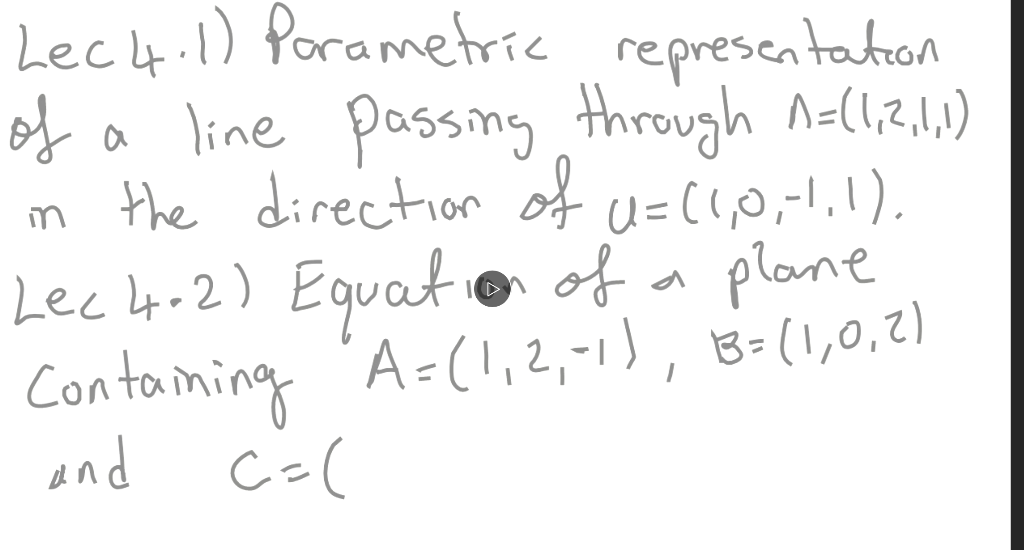 Lec 4.1) Parametric representation
of a line passing through A=(1,2,1,1)
in the direction of u=(1,0,-1,1).
Lec 4.2) Equation of a plane
Containing A=(1,2,-1), B=(1,0,2)
and C=(